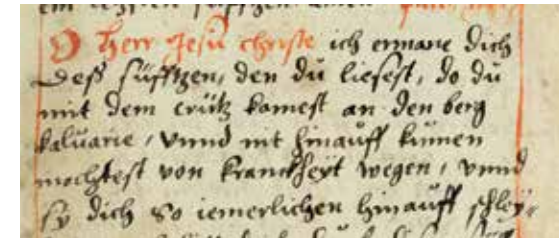 O herr Jesu christe ich ermane dich
Deß süfftzen, den du liesest, do du
mit dem crütz kamest an den berg
kaluarie / vnnd nit hinauff kinnen
mochtest von kranckheyt wegen / vnnd
sy dich so iemerlichen hinauff schley-